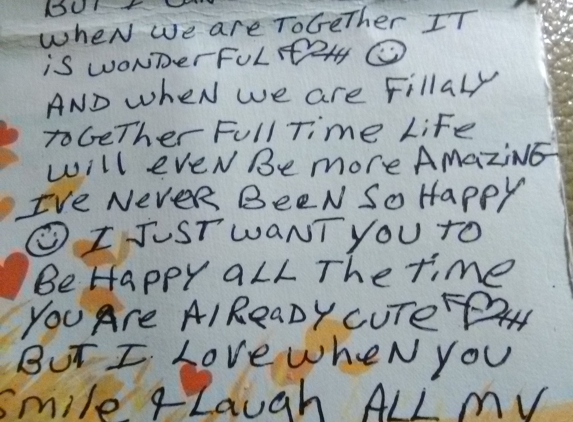 BUT I
wHeN we are ToGeTHer IT
iS woNDerFUL
AND wHeN we are FiLLaLY
ToGeTHer FuLL Time LiFe
will eveN Be more AmaziNG
Ive Never BeeN So Happy
I JUST waNT you To
Be Happy aLL THe Time
You Are AlReaDY cuTe
BuT I Love wHeN you
Smile & Laugh ALL my